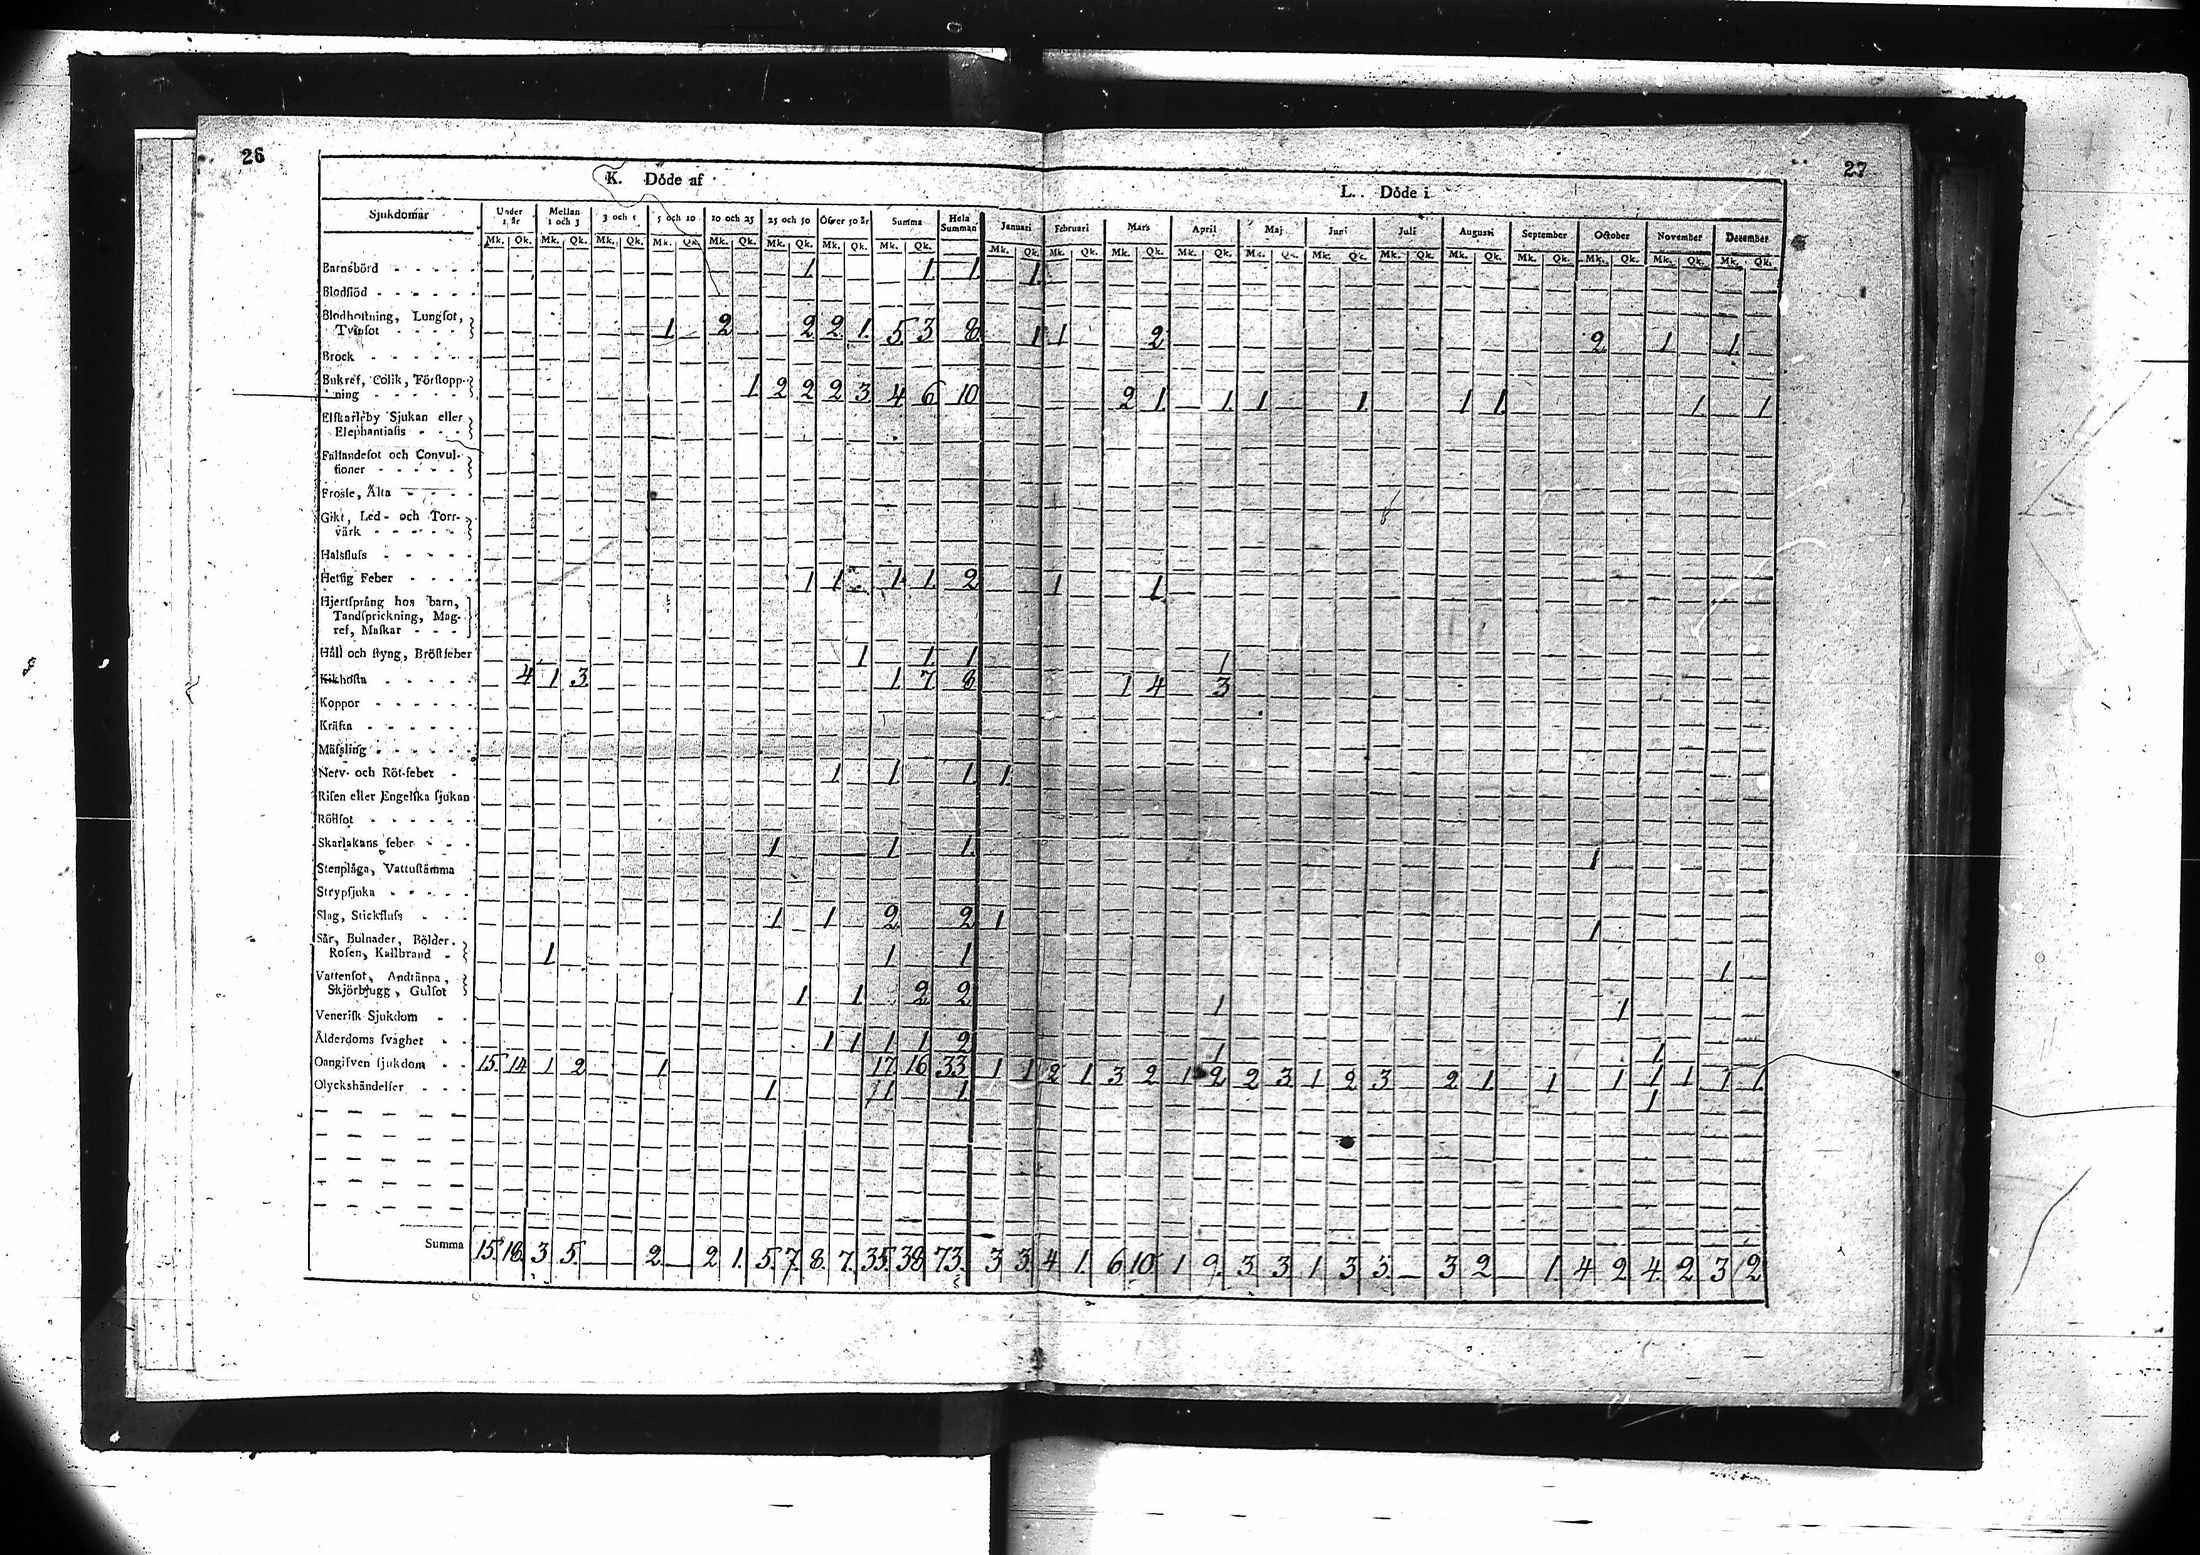 26
27
K. Döde af
L. Döde i
Sjukdomar Under 1. år Mellan 1 och 3 3 och 5 5 och 10 10 och 25 25 och 50 Öfver 50 år Summa Hela Summan Januari Februari Mars April Maj Juni Juli Augusti September October November December
Mk. Qk. Mk. Qk. Mk. Qk. Mk. Qk. Mk. Qk. Mk. Qk. Mk. Qk. Mk. Qk. Mk. Qk. Mk. Qk. Mk. Qk. Mk. Qk. Mk. Qk. Mk. Qk. Mk. Qk. Mk. Qk. Mk. Qk. Mk. Qk. Mk. Qk. Mk. Qk.
Barnsbörd 1 1 1 1
Blodsiöd
Blodhostning, Lungsot,
Tvinsot 1 2 2 2 1 5 3 8 1 1 2 2 1 1
Brock
Bukref, Colik, Förstopp-
ning 1 2 2 2 3 4 6 10 2 1 1 1 1 1 1 1 1
Elfkarleby Sjukan eller
Elephantiasis
Fallandesot och Convul-
sioner
Frossa, Älta
Gikt, Led- och Torr-
värk
Halsfluss
Hetsig Feber 1 1 1 1 2 1 1
Hjertsprång hos barn,
Tandsprickning, Mag-
ref, Maskar
Håll och styng, Bröstfeber 1 1 1 1
Kikhosta 4 1 3 1 7 8 1 4 3
Koppor
Kräfta
Mässling
Nerv- och Röt-feber 1 1 1 1
Risen eller Engelska sjukan
Rödsot
Skarlakans feber 1 1 1 1
Stenplåga, Vattustämma
Strypsjuka
Slag, Stickfluss 1 1 2 2 1 1
Sår, Bulnader, Bölder,
Rosen, Kallbrand 1 1 1 1
Vattensot, Andtäppa,
Skjörbjugg, Gulsot 1 1 2 2 1 1
Venerisk Sjukdom
Ålderdoms svaghet 1 1 1 1 2 1 1
Oangifven sjukdom 15 14 1 2 1 17 16 33 1 1 2 1 3 2 1 2 2 3 1 2 3 2 1 1 1 1 1 1 1
Olyckshändelser 1 1 1 1
Summa 15 18 3 5 — — 2 — 2 1 5 7 8 7 35 38 73 3 3 4 1 6 10 1 9 3 3 1 3 3 — 3 2 — 1 4 2 4 2 3 2